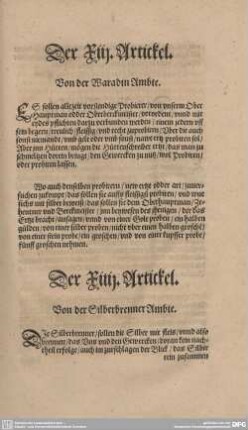 Der Xiij. Artickel.
Von der Waradin Ambte.
ES sollen allezeit vorstendige Probierer / von vnserm Ober
Hauptman odder Oberberckmeister / vorordent / vnnd mit
eydes pflichten darzu verbunden werden / einem jedern vff
sein begern / trewlich / fleissig / vnd recht zuprobiern / Vber die auch
sonst niemands / ertz odder silber vmb gelt probiren sol /
Aber jnn Hütten / mügen die Hüttenschreiber ertz / das man zu
schmeltzen dorein brengt / den Gewercken zu nutz / wol Probiern /
oder probiren lassen.
Wo auch denselben probirern / new ertz odder art / zuuer-
suchen zukumpt / das sollen sie auffs fleissigst probiren / vnd was
sichs mit silber beweist / das sollen sie dem Oberhauptman / Ze-
hentner vnd Berckmeister / jnn beywesen des jhenigen / der das
Ertz bracht / ansagen / vnnd von einer Golt proben / ein halben
gülden / von einer silber proben / nicht vber einen halben groschen /
von einer zein probe / ein groschen / vnd von einer kupffer probe /
fünff groschen nehmen.
Der Xiiij. Artickel.
Von der Silberbrenner Ambte.
DJe Silberbrenner / sollen die Silber mit fleis / vnnd also
brennen / das Vns vnd den Gewercken / doran kein nach-
theil erfolge / auch im zurschlagen der Blick / das Silber
rein zusammen